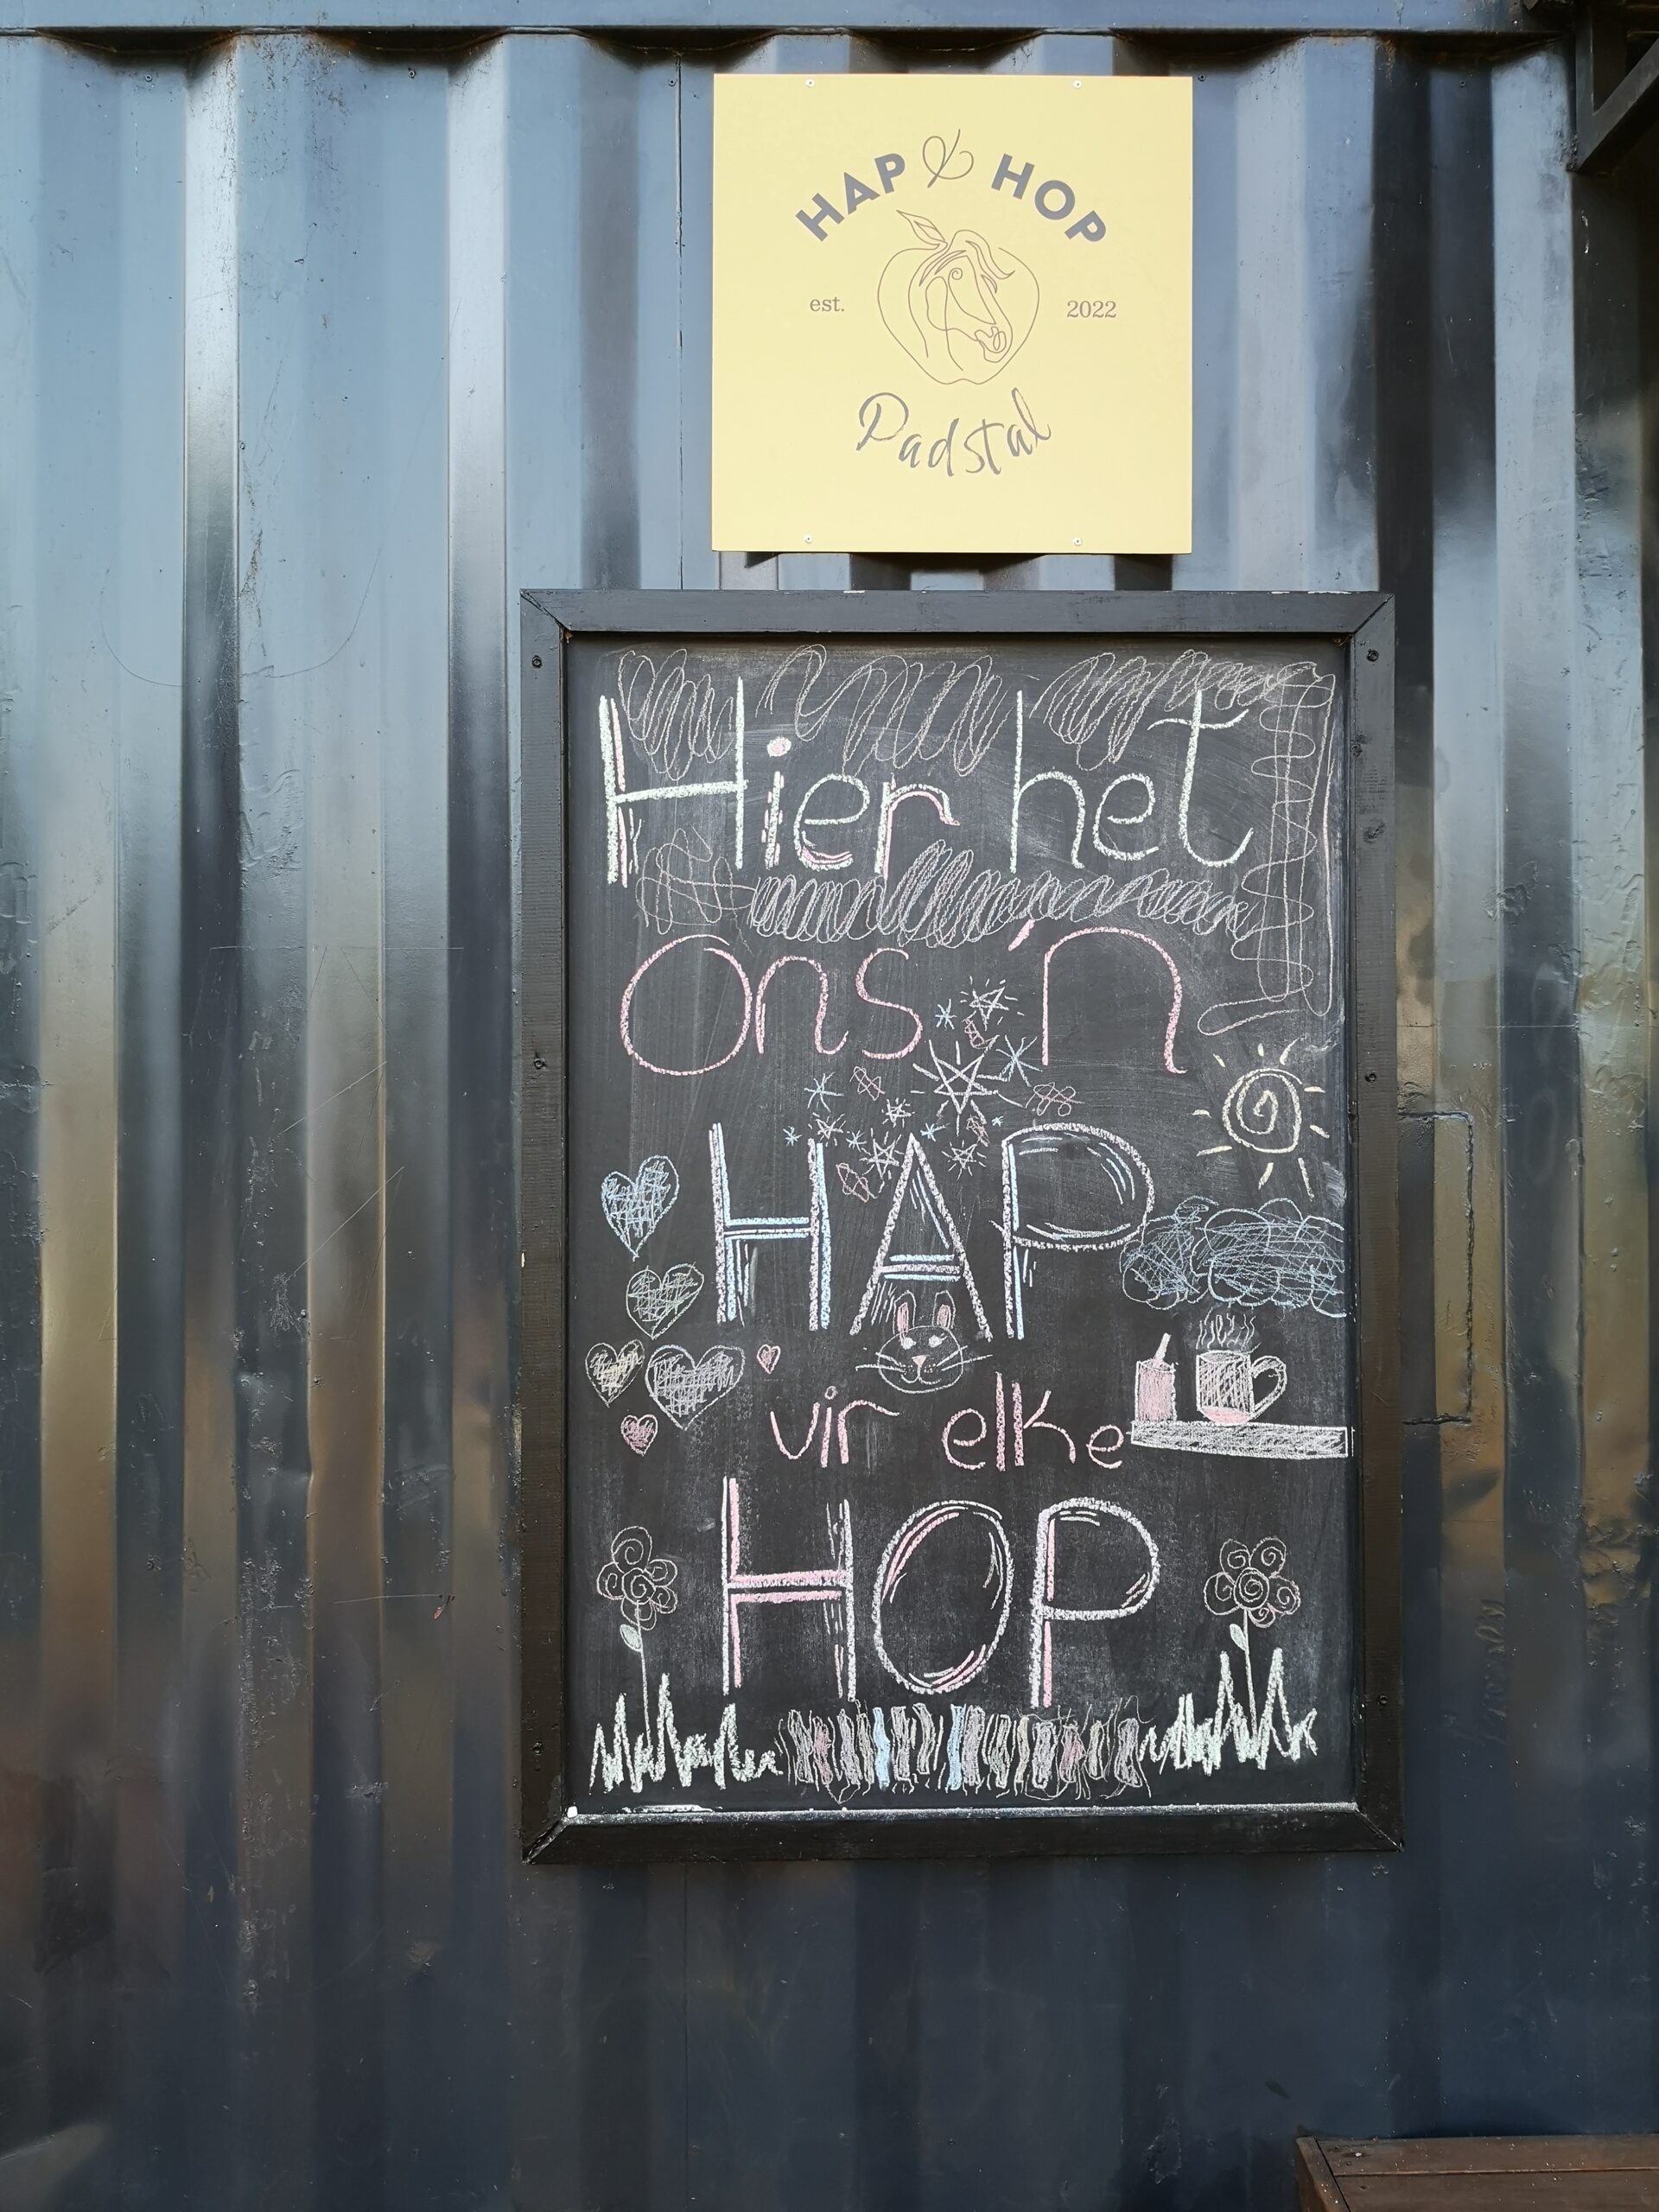 HAP & HOP
est. 2022
Padstal
Hier het
ons 'n
HAP
vir elke
HOP